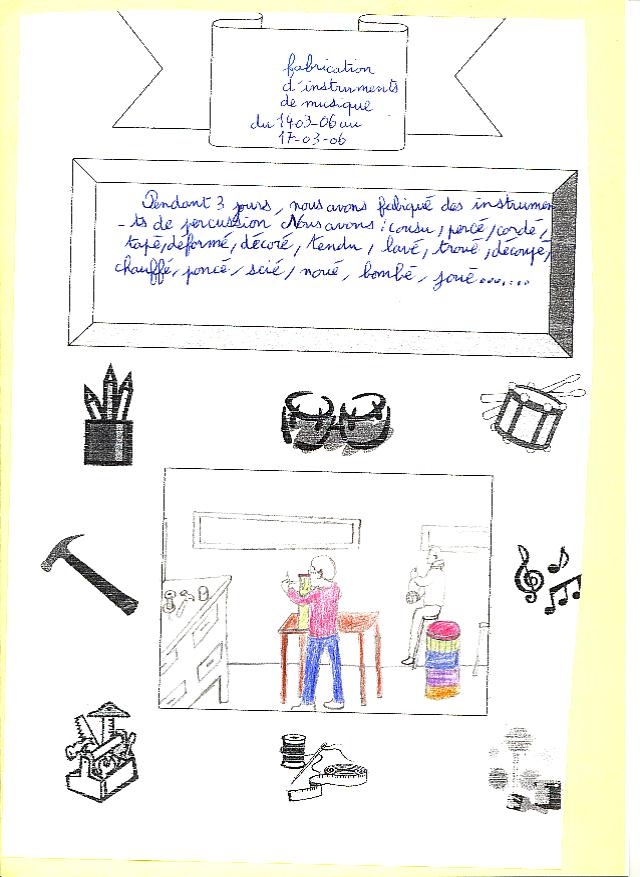 fabrication
d'instruments
de musique
du 1403-06 au
17-03-06
Pendant 3 jours, nous avons fabiqué des instrumen
-ts de percussion Nous avons : cousu, percé, cordé,
tapé, déformé, décoré, tendu, lavé, troué, découpé,
chauffé, poncé, scié, noué, bombé, joué.......